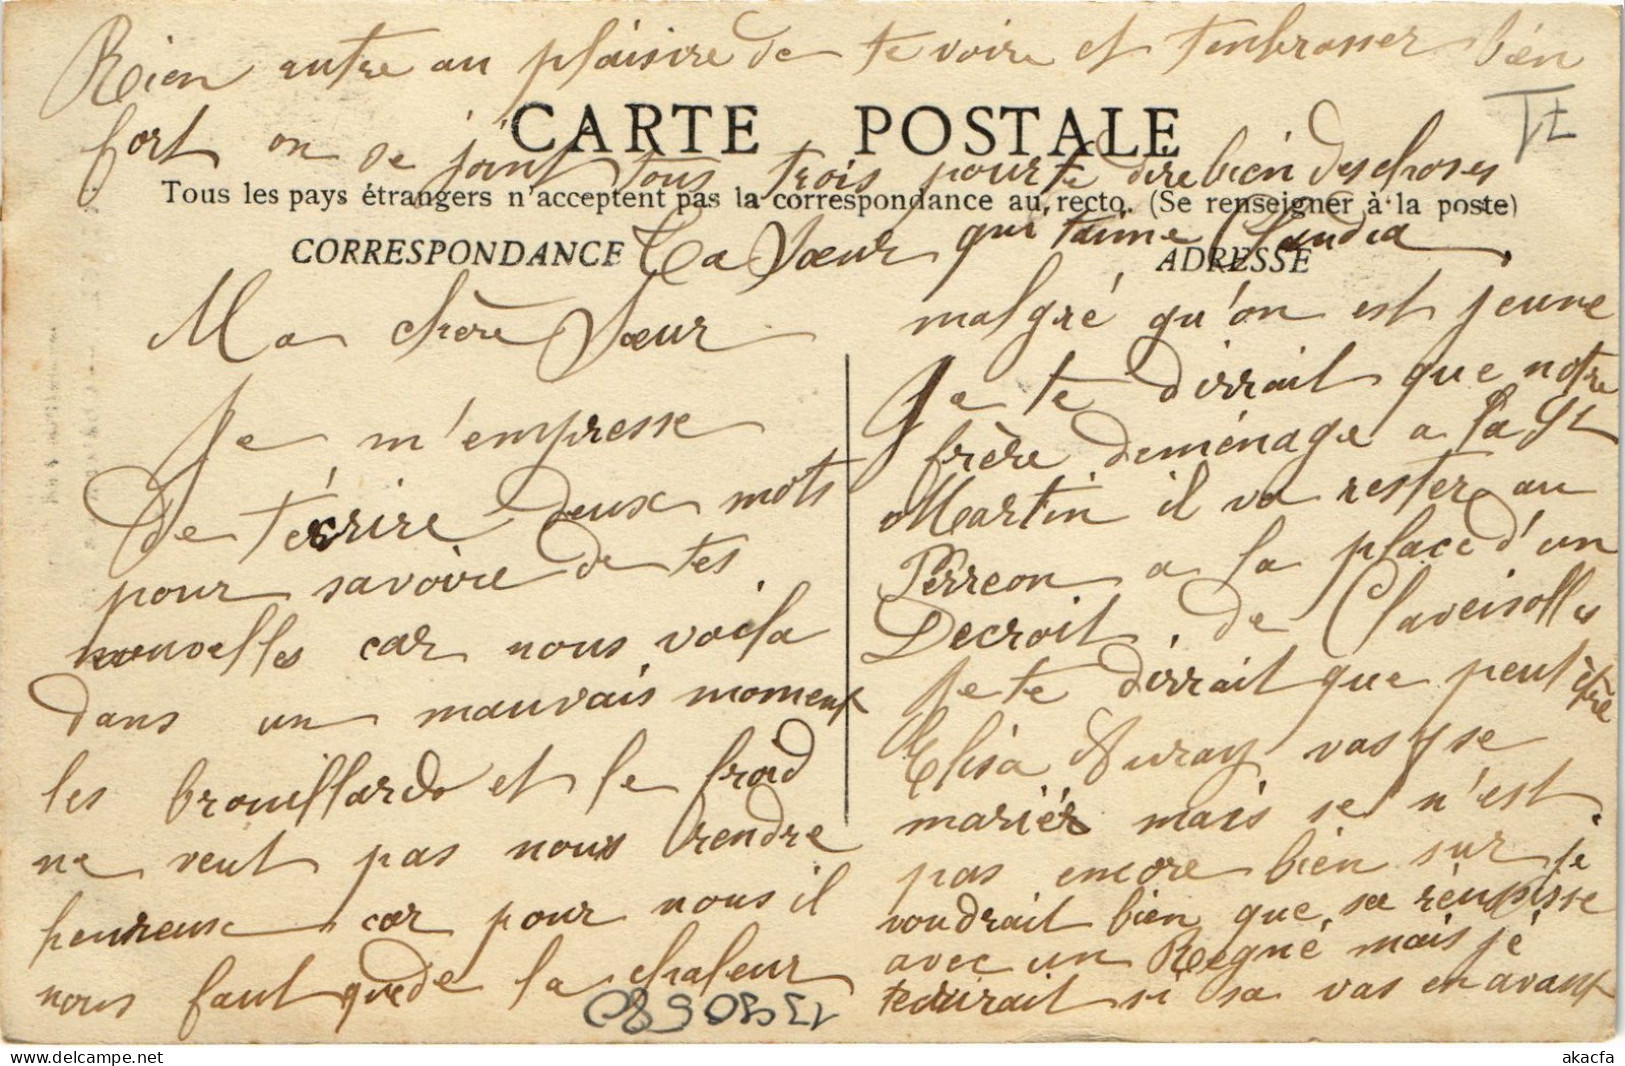 Rien autre au plaisire de te voire et t'enbrasser bien
fort on se joint tous trois pour te dire bien des choses
TZ
CARTE POSTALE
Tous les pays étrangers n'acceptent pas la correspondance au recto. (Se renseigner à la poste)
CORRESPONDANCE
Ta Sœur qui t'aime Claudia
ADRESSE
Ma chère Sœur
Je m'empresse
De t'écrire deux mots
pour savoire de tes
nouvelles car nous voila
dans un mauvais moment
les brouillards et le froid
ne veut pas nous rendre
heureux car pour nous il
nous faut que de la chaleur
malgré qu'on est jeune
Je te dirrait que notre
frère deménage a la St
Martin il va rester au
Perreon a la place d'un
Decroit. de Claveisolles
Je te dirrait que peut être
Elisa Auray vas y se
mariér mais se n'est
pas encore bien sur je
voudrait bien que sa réussisse
avec un Regné mais jé
te dirait si sa vas en avant
akacfa